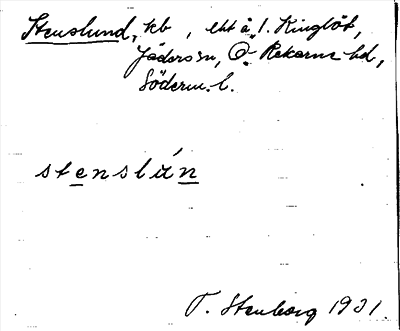 Stenslund, kb, ektå, 1. Kinglöt,
Jäders sn, Ö. Rekarne hd,
Söderm. l.
stenslún
T. Stenborg 1931.